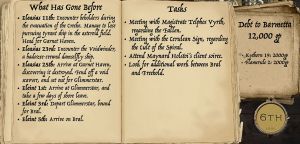 What Has Gone Before
Eleasias 11th: Encounter beholders during
the evacuation of the centre. Manage to lose
pursuing tyrant ship in the asteroid field.
Head for Garnet Haven.
Eleasias 23rd: Encounter the Voidwinder,
a hadozee crewed damselfly ship.
Eleasias 25th: Arrive at Garnet Haven,
discovering it destroyed. Fend off a void
weaver, and set out for Glimmerstar.
Eleint 1st: Arrive at Glimmerstar, and
take a few days of shore leave.
Eleint 3rd: Depart Glimmerstar, bound
for Bral.
Eleint 5th: Arrive on Bral.
Tasks
• Meeting with Magistrate Telphor Vyrth,
regarding the Fallen.
• Meeting with the Cerulean Sign, regarding
the Cult of the Spiral.
• Attend Maynard Holoan's client soiree.
• Look for additional work between Bral
and Freehold.
Debt to Barnetta
12,000
2000g
2000g
6TH